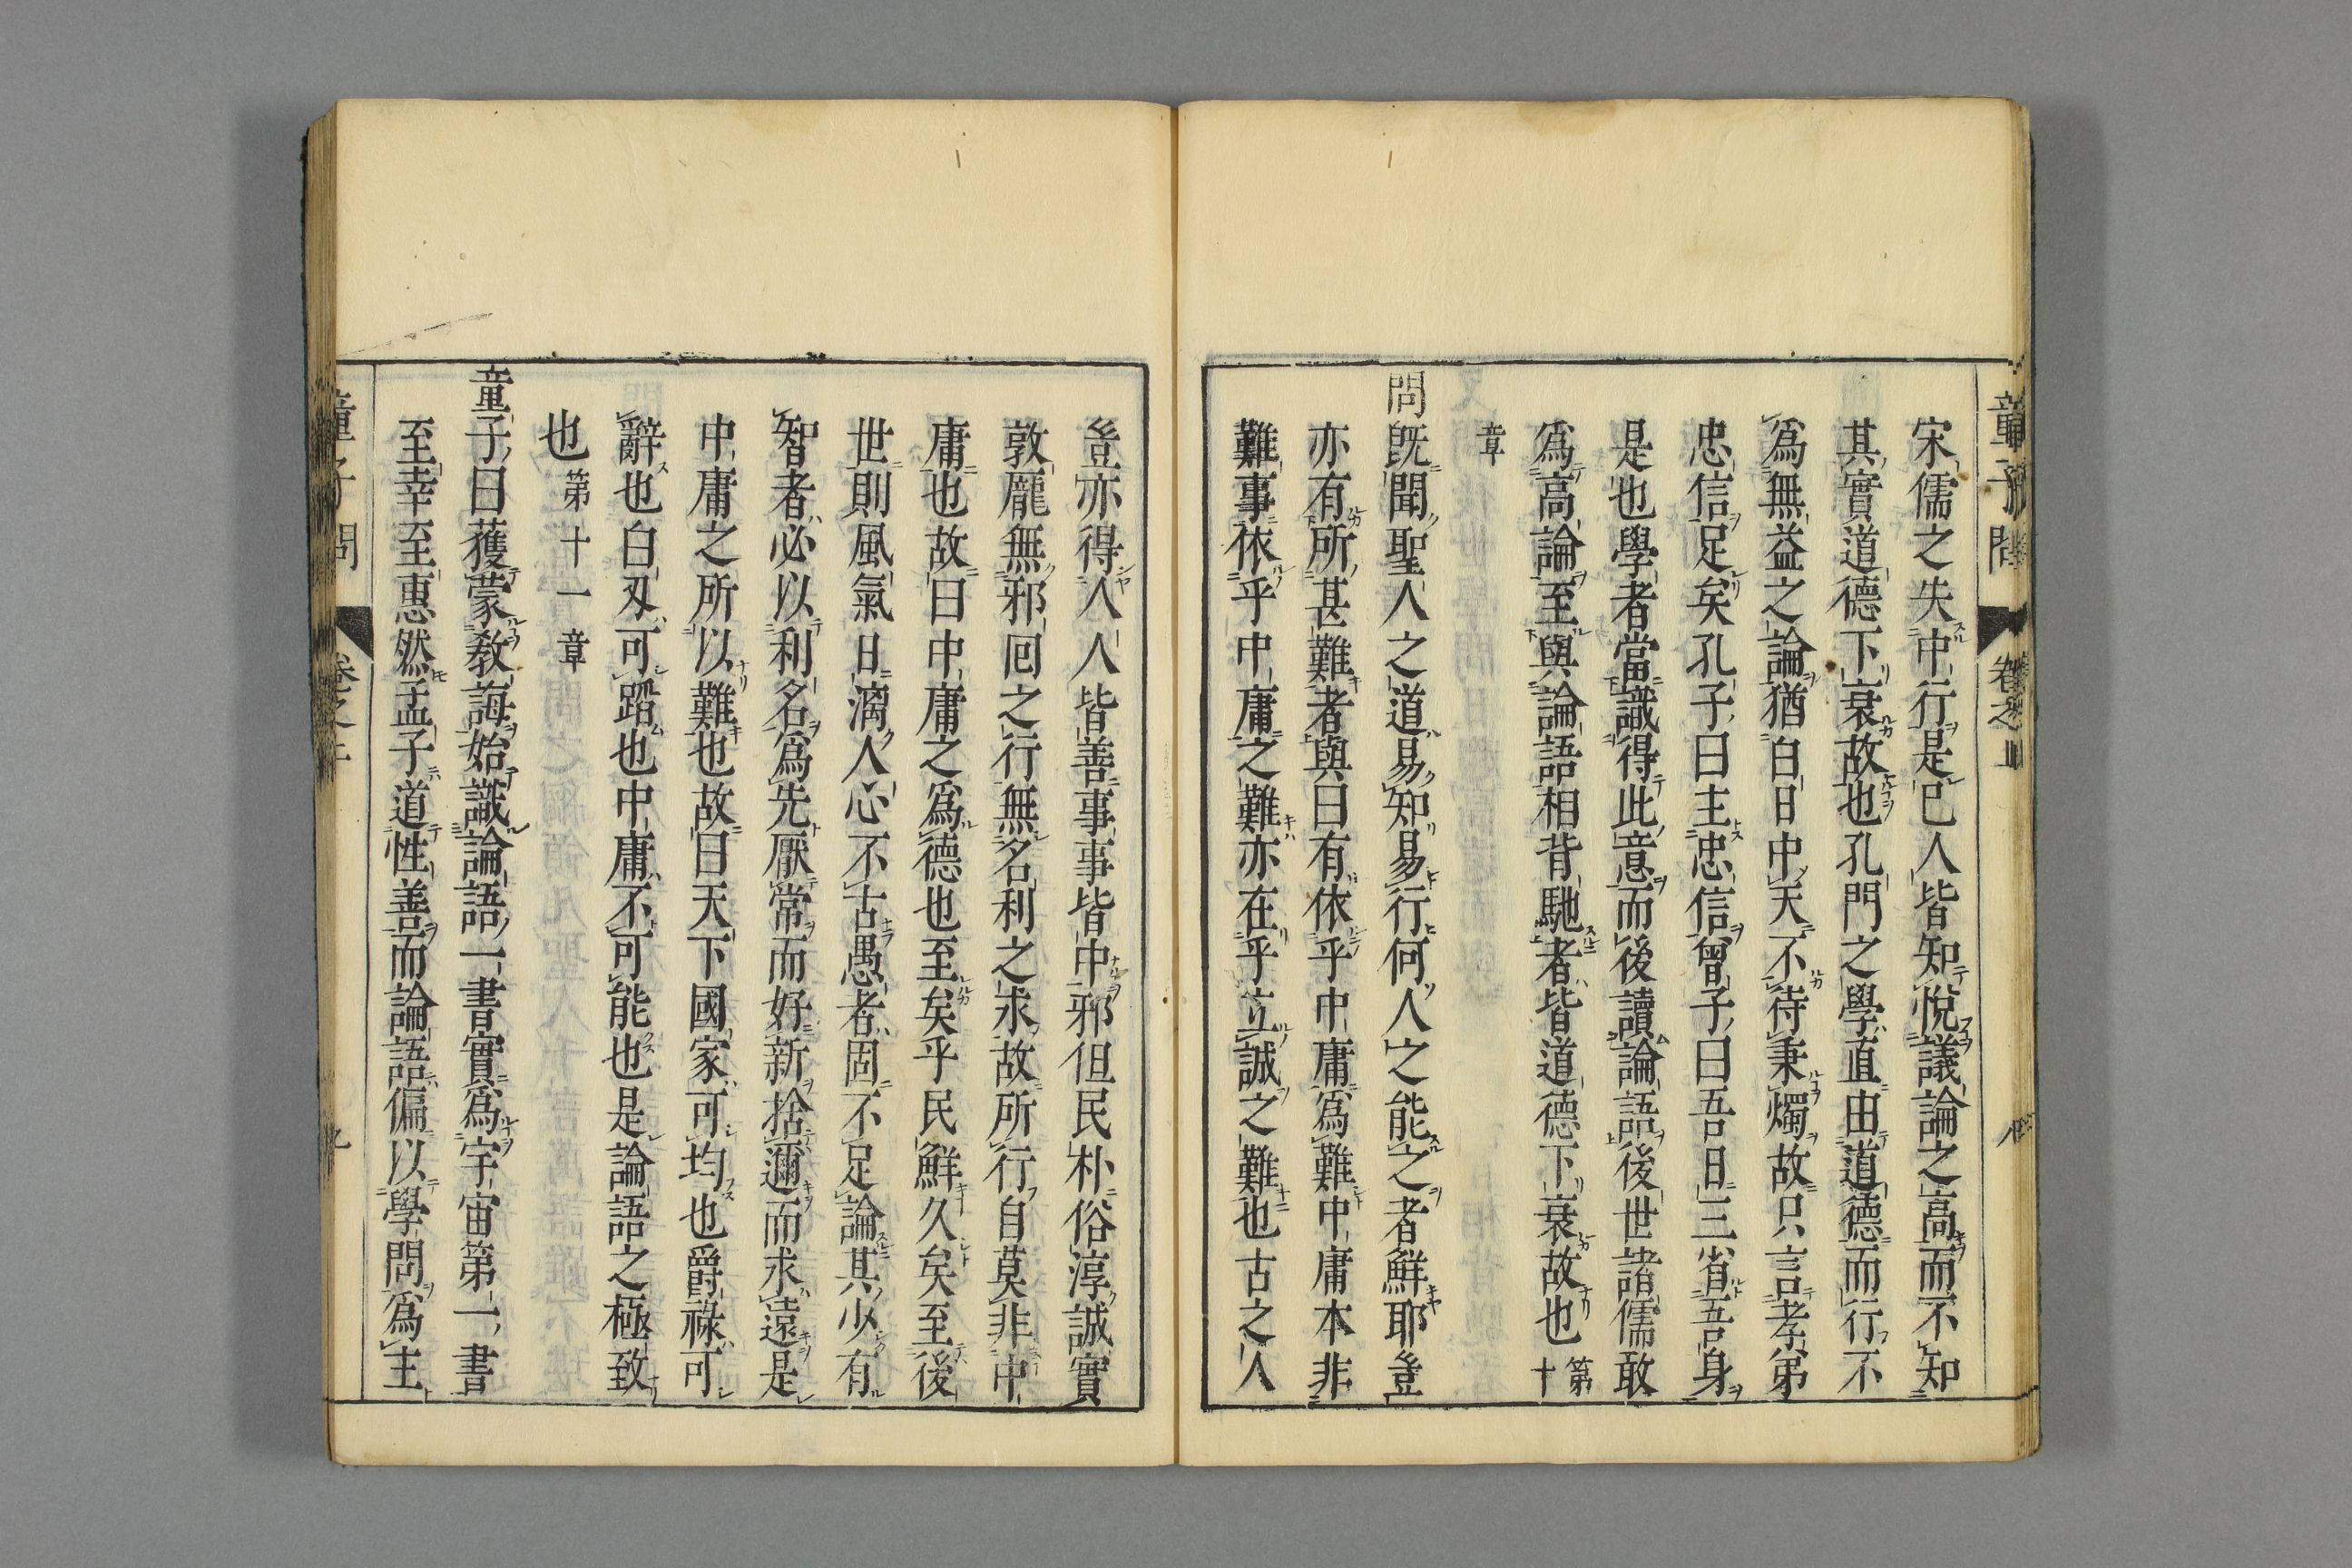 童子問　卷之上　八
宋儒之失中行是已人皆知悅議論之高而不知
其實道德下衰故也孔門之學直由道德而行不
爲無益之論猶白日中天不待秉燭故只言孝弟
忠信足矣孔子曰主忠信曾子曰吾日三省吾身
是也學者當識得此意而後讀論語後世諸儒敢
爲高論至與論語相背馳者皆道德下衰故也第十
章
問旣聞聖人之道易知易行何人之能之者鮮耶豈
亦有所甚難者與曰有依乎中庸爲難中庸本非
難事依乎中庸之難亦在乎立誠之難也古之人
豈亦得人人皆善事事皆中邪但民朴俗淳誠實
敦厖無邪回之行無名利之求故所行自莫非中
庸也故曰中庸之爲德也至矣乎民鮮久矣至後
世則風氣日漓人心不古愚者固不足論其少有
智者必以利名爲先厭常而好新捨邇而求遠是
中庸之所以難也故曰天下國家可均也爵祿可
辭也白刃可蹈也中庸不可能也是論語之極致
也第十一章
童子曰獲蒙敎誨始識論語一書實爲宇宙第一書
至幸至惠然孟子道性善而論語偏以學問爲主
童子問　卷之上　九